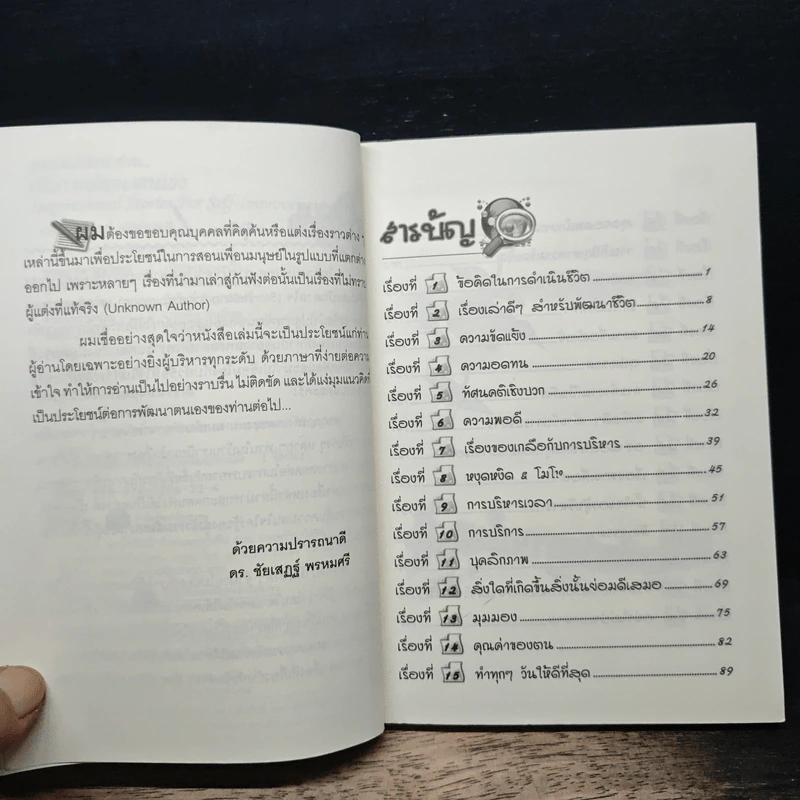 ผมต้องขอขอบคุณบุคคลที่คิดค้นหรือแต่งเรื่องราวต่าง ๆ
เหล่านี้ขึ้นมาเพื่อประโยชน์ในการสอนเพื่อนมนุษย์ในรูปแบบที่แตกต่าง
ออกไป เพราะหลายๆ เรื่องที่นำมาเล่าสู่กันฟังต่อนั้นเป็นเรื่องที่ไม่ทราบ
ผู้แต่งที่แท้จริง (Unknown Author)
ผมเชื่ออย่างสุดใจว่าหนังสือเล่มนี้จะเป็นประโยชน์แก่ท่าน
ผู้อ่านโดยเฉพาะอย่างยิ่งผู้บริหารทุกระดับ ด้วยภาษาที่ง่ายต่อความ
เข้าใจ ทำให้การอ่านเป็นไปอย่างราบรื่น ไม่ติดขัด และได้แง่มุมแนวคิดที่
เป็นประโยชน์ต่อการพัฒนาตนเองของท่านต่อไป...
ด้วยความปรารถนาดี
ดร. ชัยเสฏฐ์ พรหมศรี
สารบัญ
เรื่องที่ 1 ข้อคิดในการดำเนินชีวิต 1
เรื่องที่ 2 เรื่องเล่าดีๆ สำหรับพัฒนาชีวิต 8
เรื่องที่ 3 ความขัดแย้ง 14
เรื่องที่ 4 ความอดทน 20
เรื่องที่ 5 ทัศนคติเชิงบวก 26
เรื่องที่ 6 ความพอดี 32
เรื่องที่ 7 เรื่องของเกลือกับการบริหาร 39
เรื่องที่ 8 หงุดหงิด & โมโห 45
เรื่องที่ 9 การบริหารเวลา 51
เรื่องที่ 10 การบริการ 57
เรื่องที่ 11 บุคลิกภาพ 63
เรื่องที่ 12 สิ่งใดที่เกิดขึ้นสิ่งนั้นย่อมดีเสมอ 69
เรื่องที่ 13 มุมมอง 75
เรื่องที่ 14 คุณค่าของตน 82
เรื่องที่ 15 ทำทุกๆ วันให้ดีที่สุด 89